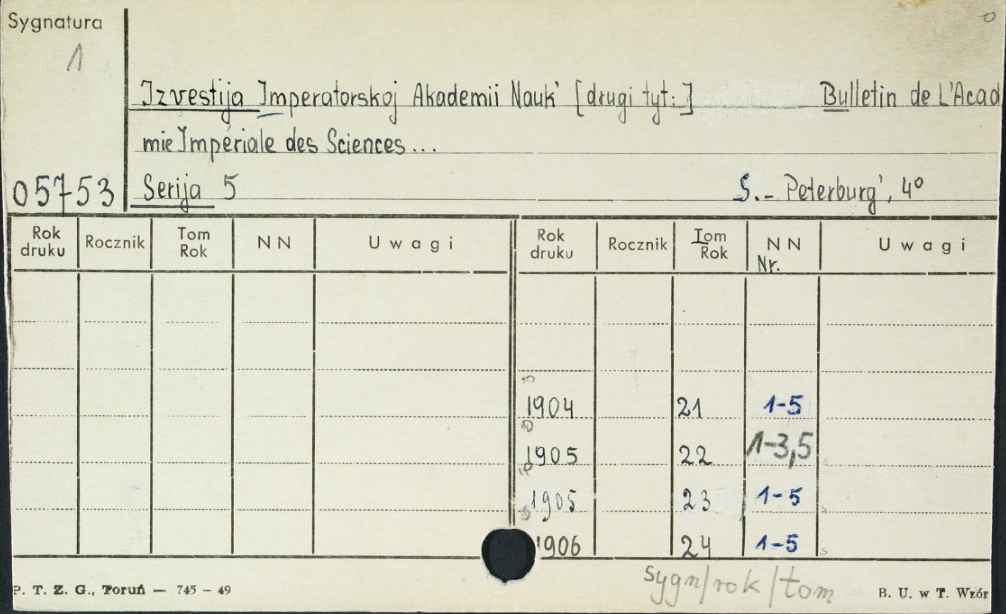 Sygnatura
1
Izvestija Imperatorskoj Akademii Nauk' [drugi tyt:] Bulletin de L'Acad
mie Impériale des Sciences...
05753 Serija 5 S.- Peterburg', 4º
Rok druku Rocznik Tom Rok NN Uwagi Rok druku Rocznik Tom Rok NN Nr. Uwagi
1904 21 1-5
1905 22 1-3,5
1905 23 1-5
1906 24 1-5
sygn/rok/tom
P. T. Z. G., Toruń — 745 - 49 B. U. w T. Wzór